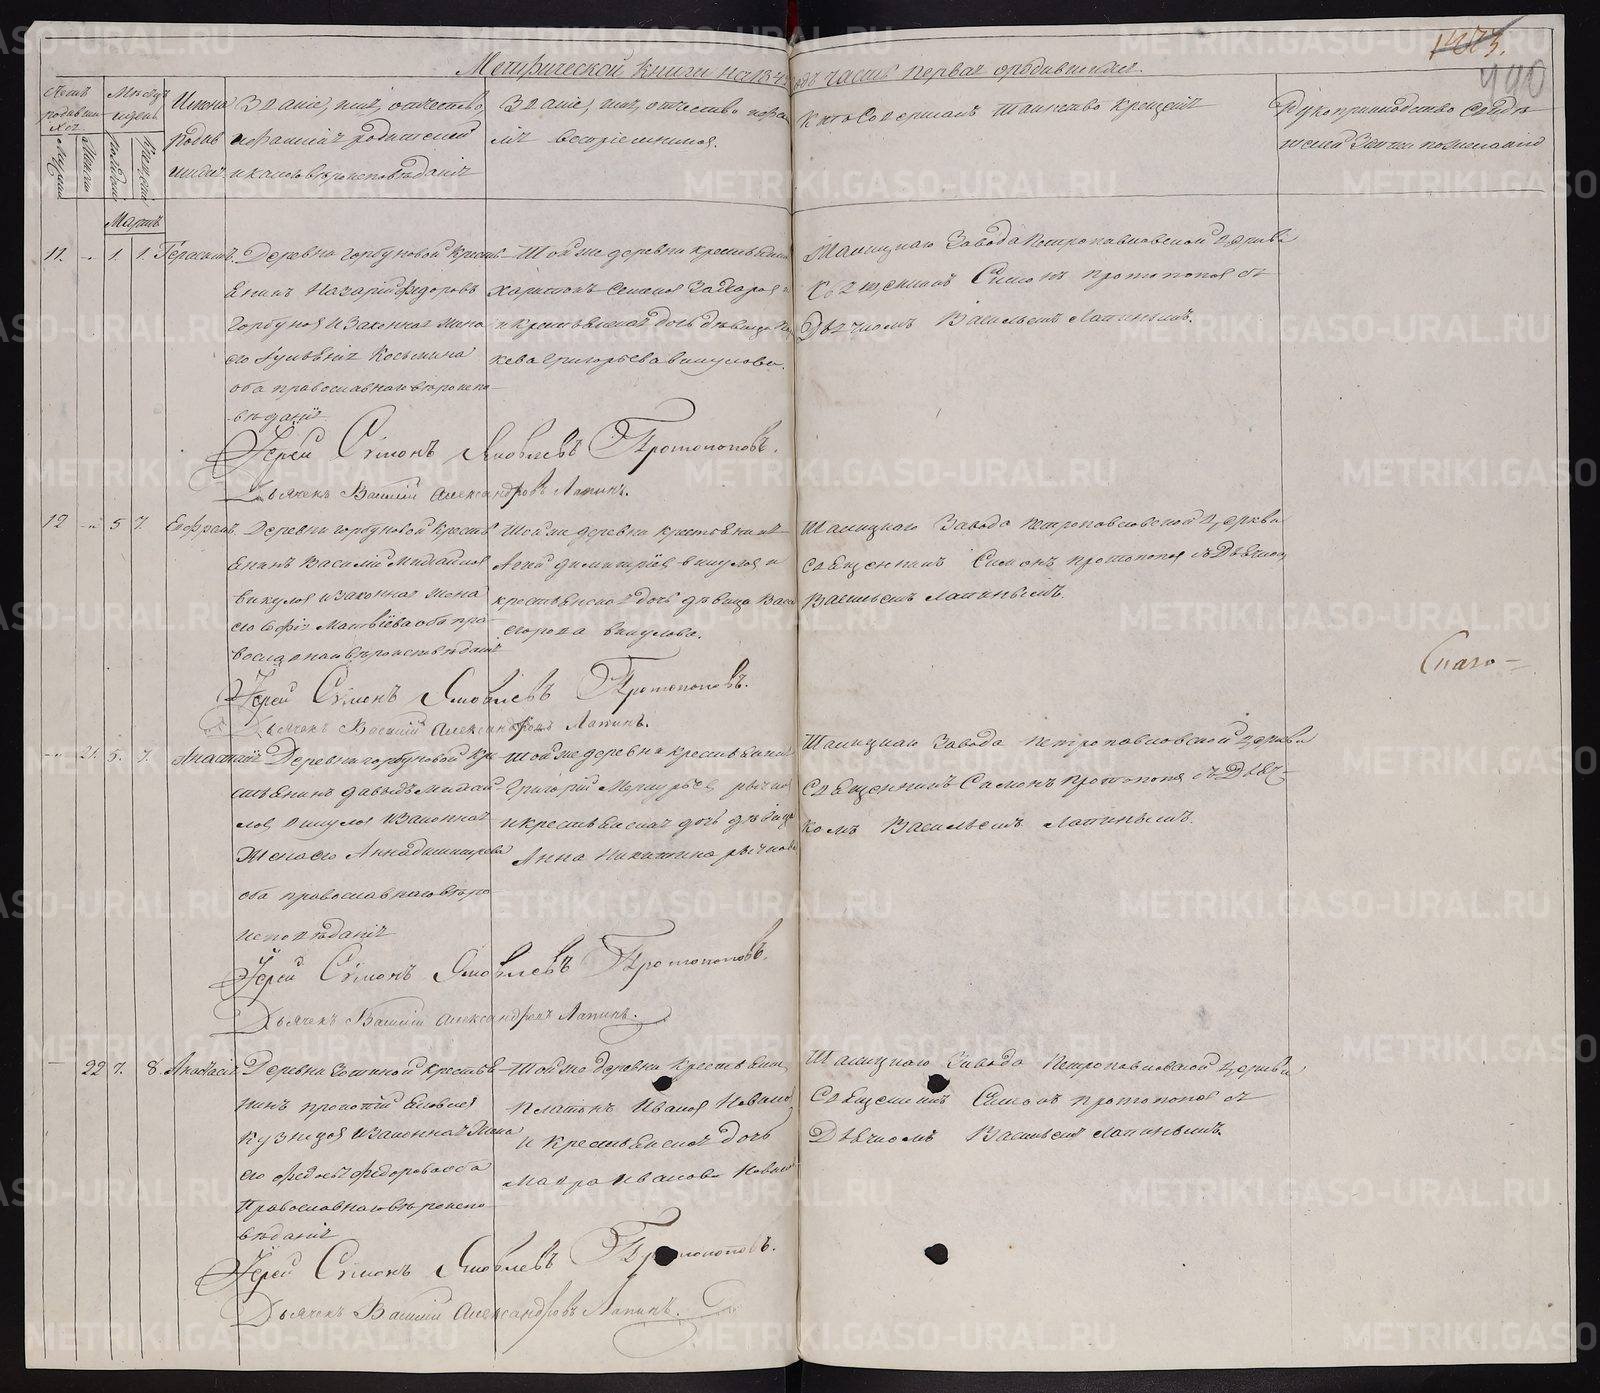 1773.
990
Метрической книги на 184 годъ часть первая о родившихся.
Счетъ родившихся
Мужеска
Женска
Мѣсяцъ и день
Рожденія
Крещенія
Имена родившихся
Званіе, имя, отчество,
и фамилія родителей
и какого вѣроисповѣданія
Званіе, имя, отчество и фами
лія воспріемниковъ.
Кто совершалъ таинство крещенія
Рукоприкладство свидѣ
телей записи по желанію
Мартъ
11. - 1. 1. Герасимъ.
Деревни Горбуновой кресть
енинъ Назарій Федоровъ
Горбуновъ и законная жена
его Гликерія Косьмина
оба православнаго вѣроиспо
вѣданія
Той же деревни крестьянинъ
Харитонъ Семеновъ Захаровъ
и крестьянская дочь дѣвица
Григорьева Викулова.
Талицкаго Завода Петропавловской церкви
Священникъ Симонъ Протопоповъ съ
Дьячкомъ Васильемъ Лапинымъ.
Іерей Сѵмонъ Яковлевъ Протопоповъ.
Дьячекъ Василій Александровъ Лапинъ.
12 - 5 7. Ефремъ.
Деревни Горбуновой кресть
енинъ Василій Михайловъ
Викуловъ и законная жена
его Софія Матвіева оба пра
вославнаго вѣроисповѣданія
Той же деревни крестьенинъ
Димитріевъ Викуловъ и
крестьенская дочь дѣвица Васса
Егорова Викулова.
Талицкаго Завода Петропавловской церкви
Священникъ Симонъ Протопоповъ съ Дьячкомъ
Васильемъ Лапинымъ.
Іерей Сѵмонъ Яковлевъ Протопоповъ.
Дьячекъ Василій Александровъ Лапинъ.
- 21. 5. 7.
Деревни Горбуновой кре
стьенинъ Давыдъ Михай
ловъ Викуловъ и законная
жена его Анна Димитрева
оба православнаго вѣро
исповѣданія
Той же деревни крестьенинъ
Григорій Меркурьевъ Рычковъ
и крестьенская дочь дѣвица
Анна Никитина Рычкова
Талицкаго Завода Петропавловской церкви
Священникъ Симонъ Протопоповъ съ Дьяч
комъ Васильемъ Лапинымъ.
Іерей Сѵмонъ Яковлевъ Протопоповъ.
Дьячекъ Василій Александровъ Лапинъ.
- 22 7. 8. Анастасія.
Деревни Зотиной крестье
нинъ Прокопій
Кузнецовъ и законная жена
его Федосья Федорова оба
православнаго вѣроиспо
вѣданія
Той же деревни крестьенинъ
Платонъ Ивановъ
и крестьенская дочь
Мавра Иванова
Талицкаго Завода Петропавловской церкви
Священникъ Симонъ Протопоповъ съ
Дьячкомъ Васильемъ Лапинымъ.
Іерей Сѵмонъ Яковлевъ Протопоповъ.
Дьячекъ Василій Александровъ Лапинъ.
METRIKI.GASO-URAL.RU